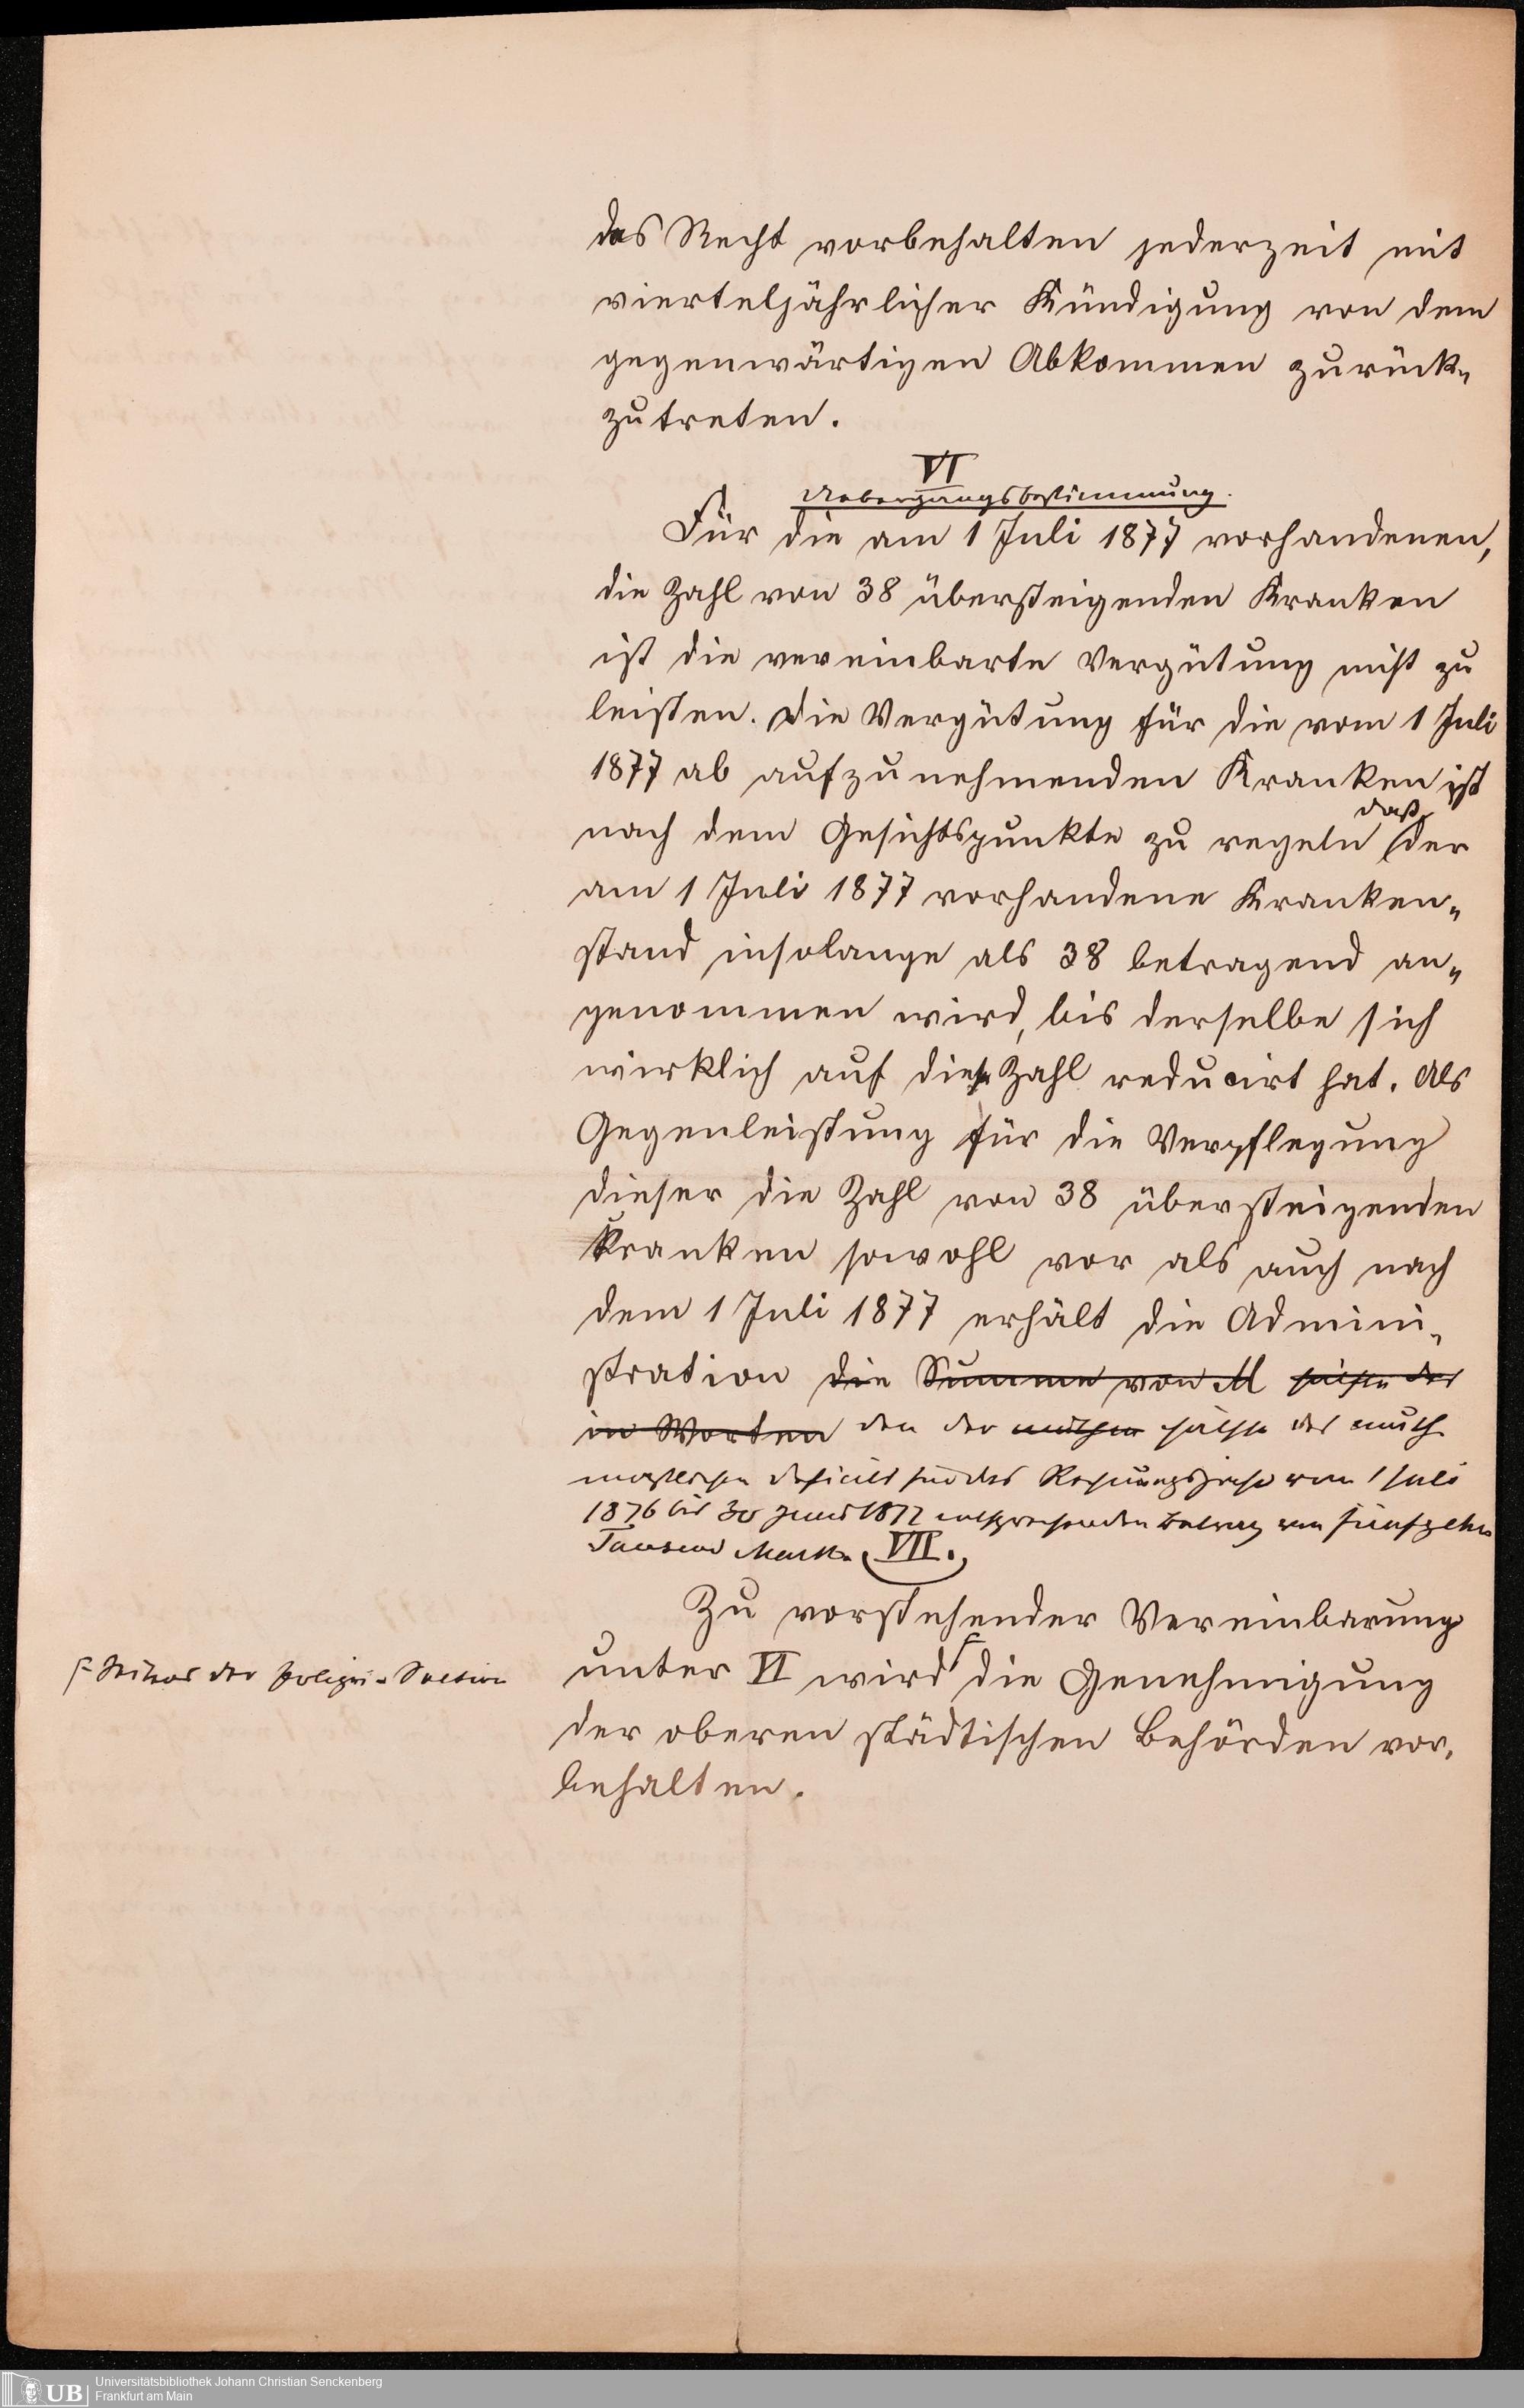 das Recht vorbehalten jederzeit mit
vierteljährlicher Kündigung von dem
gegenwärtigen Abkommen zurück-
zutreten.
VI
Uebergangsbestimmung.
Für die am 1 Juli 1877 vorhandenen,
die Zahl von 38 übersteigenden Kranken
ist die vereinbarte Vergütung nicht zu
leisten. Die Vergütung für die vom 1 Juli
1877 ab aufzunehmenden Kranken ist
nach dem Gesichtspunkte zu regeln daß der
am 1 Juli 1877 vorhandene Kranken-
stand insolange als 38 betragend an-
genommen wird, bis derselbe sich
wirklich auf diese Zahl reducirt hat. Als
Gegenleistung für die Verpflegung
dieser die Zahl von 38 übersteigenden
Kranken sowohl vor als auch nach
dem 1 Juli 1877 erhält die Admini-
stration die Summe von M
in Worten den der Hälfte des muth
maßlichen Deficits für das Rechnungsjahr vom 1 Juli
1876 bis 30 Juni 1877 entsprechenden Betrag von fünfzehn
Tausend Mark. VII.
Zu vorstehender Vereinbarung
unter VI wird die Genehmigung
der oberen städtischen Behörden vor-
behalten.
Seitens der Polizei-Section
Universitätsbibliothek Johann Christian Senckenberg
Frankfurt am Main
UB